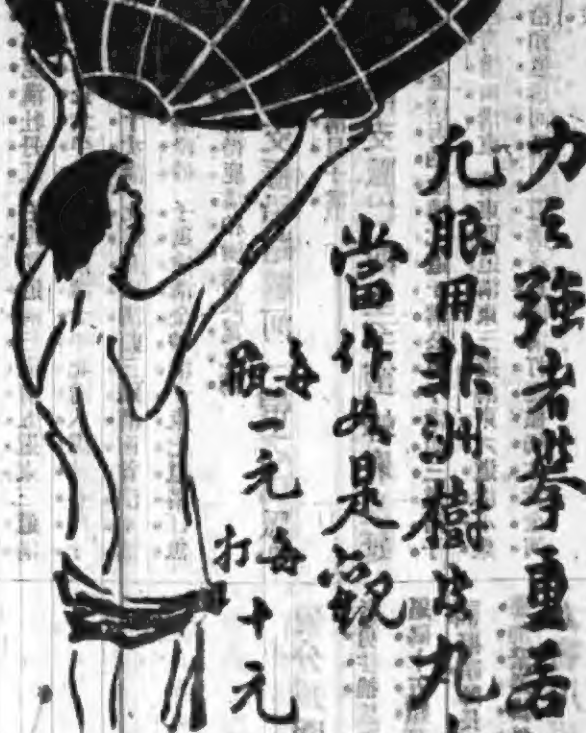 力之強者舉重若
凡服用非洲樹皮丸
當作如是觀
每瓶一元每打十元